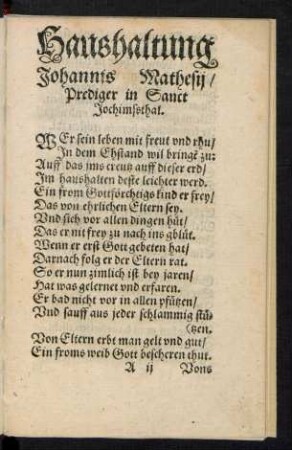 Haushaltung
Johannis Mathesij/
Prediger in Sanct
Jochimsthal.
WEr sein leben mit freut vnd rhu/
In dem Ehstand wil bringẽ zu:
Auff das jms creutz auff dieser erd/
Im haushalten deste leichter werd.
Ein from Gottfórchtigs kind er frey/
Das von ehrlichen Eltern sey.
Vnd sich vor allen dingen hüt/
Das er nit frey zu nach ins gblüt.
Wenn er erst Gott gebeten hat/
Darnach folg er der Eltern rat.
So er nun zimlich ist bey jaren/
Hat was gelernet vnd erfaren.
Er bad nicht vor in allen pfützen/
Vnd sauff aus jeder schlammig stü-
(tzen.
Von Eltern erbt man gelt vnd gut/
Ein froms weib Gott bescheren thut.
A ij Vons